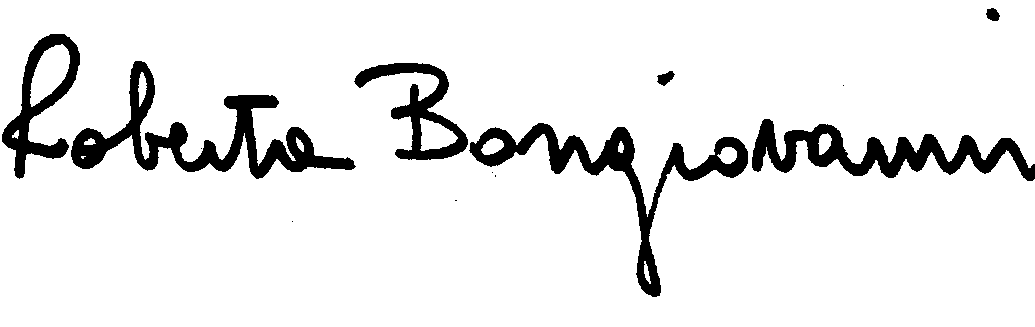 Roberta Bongiovanni